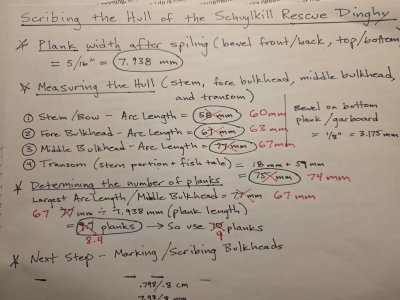 Scribing the Hull of the Schuylkill Rescue Dinghy
* Plank width after spiling (bevel front/back, top/bottom)
= 5/16" = 7.938 mm
* Measuring the Hull (stem, fore bulkhead, middle bulkhead,
and transom)
① Stem/Bow - Arc Length = 58 mm 60mm
② Fore Bulkhead - Arc Length = 67 mm 63 mm
③ Middle Bulkhead - Arc Length = 77 mm 67mm
④ Transom (stern portion + fish tale) = 18 mm + 57mm
= 75 mm 74 mm
Bevel on bottom
plank/garboard
= 1/8" = 3.175 mm
* Determining the number of planks
Largest Arc Length/Middle Bulkhead = 77 mm 67 mm
67 77 mm ÷ 7.938 mm (plank length)
= 9.7 planks → So use 10 planks
8.4 9
* Next Step - Marking/Scribing Bulkheads
.798/.8 cm